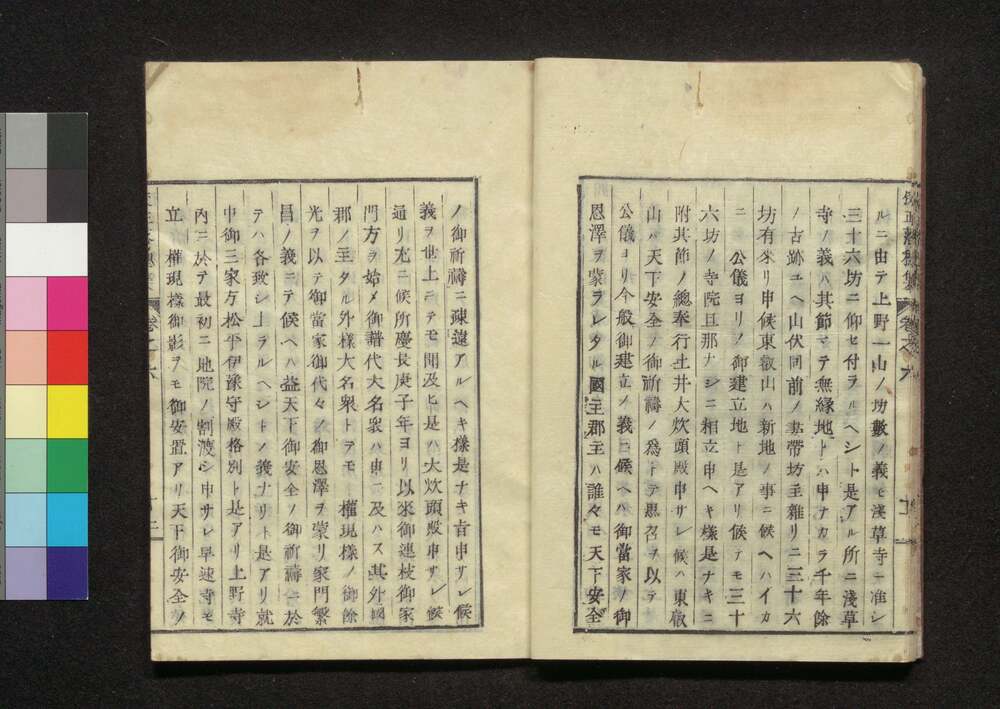 ルニ由テ上野一山ノ坊數ノ義モ淺草寺ニ准シ
三十六坊ニ仰セ付ラルヘシト是アル所ニ淺草
寺ノ義ハ其節マテ無縁地トハ申ナカラ千年餘
ノ古跡ユヘ山伏同前ノ妻帶坊主雜リニ三十六
坊有來リ申候東叡山ハ新地ノ事ニ候ヘハイカ
ニ 公儀ヨリノ御建立地ト是アリ候テモ三十
六坊ノ寺院旦那ナシニ相立申ヘキ樣是ナキニ
附其節ノ總奉行土井大炊頭殿申サレ候ハ東叡
山ハ天下安全ノ御祈禱ノ爲トテ思召ヲ以テ
公儀ヨリ今般御建立ノ義ニ候ヘハ御當家ノ御
恩澤ヲ蒙ラレタル國主郡主ハ誰々モ天下安全
ノ御祈禱ニ疎遠アルヘキ樣是ナキ旨申サレ候
義ヲ世上ニテモ聞及ヒ是ハ大炊頭殿申サレ候
通リ尤ニ候所慶長庚子年ヨリ以來御連枝御家
門方ヲ始メ御譜代大名衆ハ申ニ及ハス其外國
郡ノ主タル外樣大名衆トテモ 權現樣ノ御餘
光ヲ以テ御當家御代々ノ御恩澤ヲ蒙リ家門繁
昌ノ義ニテ候ヘハ益天下御安全ノ御祈禱ニ於
テハ各致シ上ラルヘシトノ義ナリト是アリ就
中御三家方松平伊豫守殿格別ト是アリ上野寺
内ニ於テ最初ニ地院ノ割渡シ申サレ早速寺モ
立 權現樣御影ヲモ御安置アリ天下御安全ノ